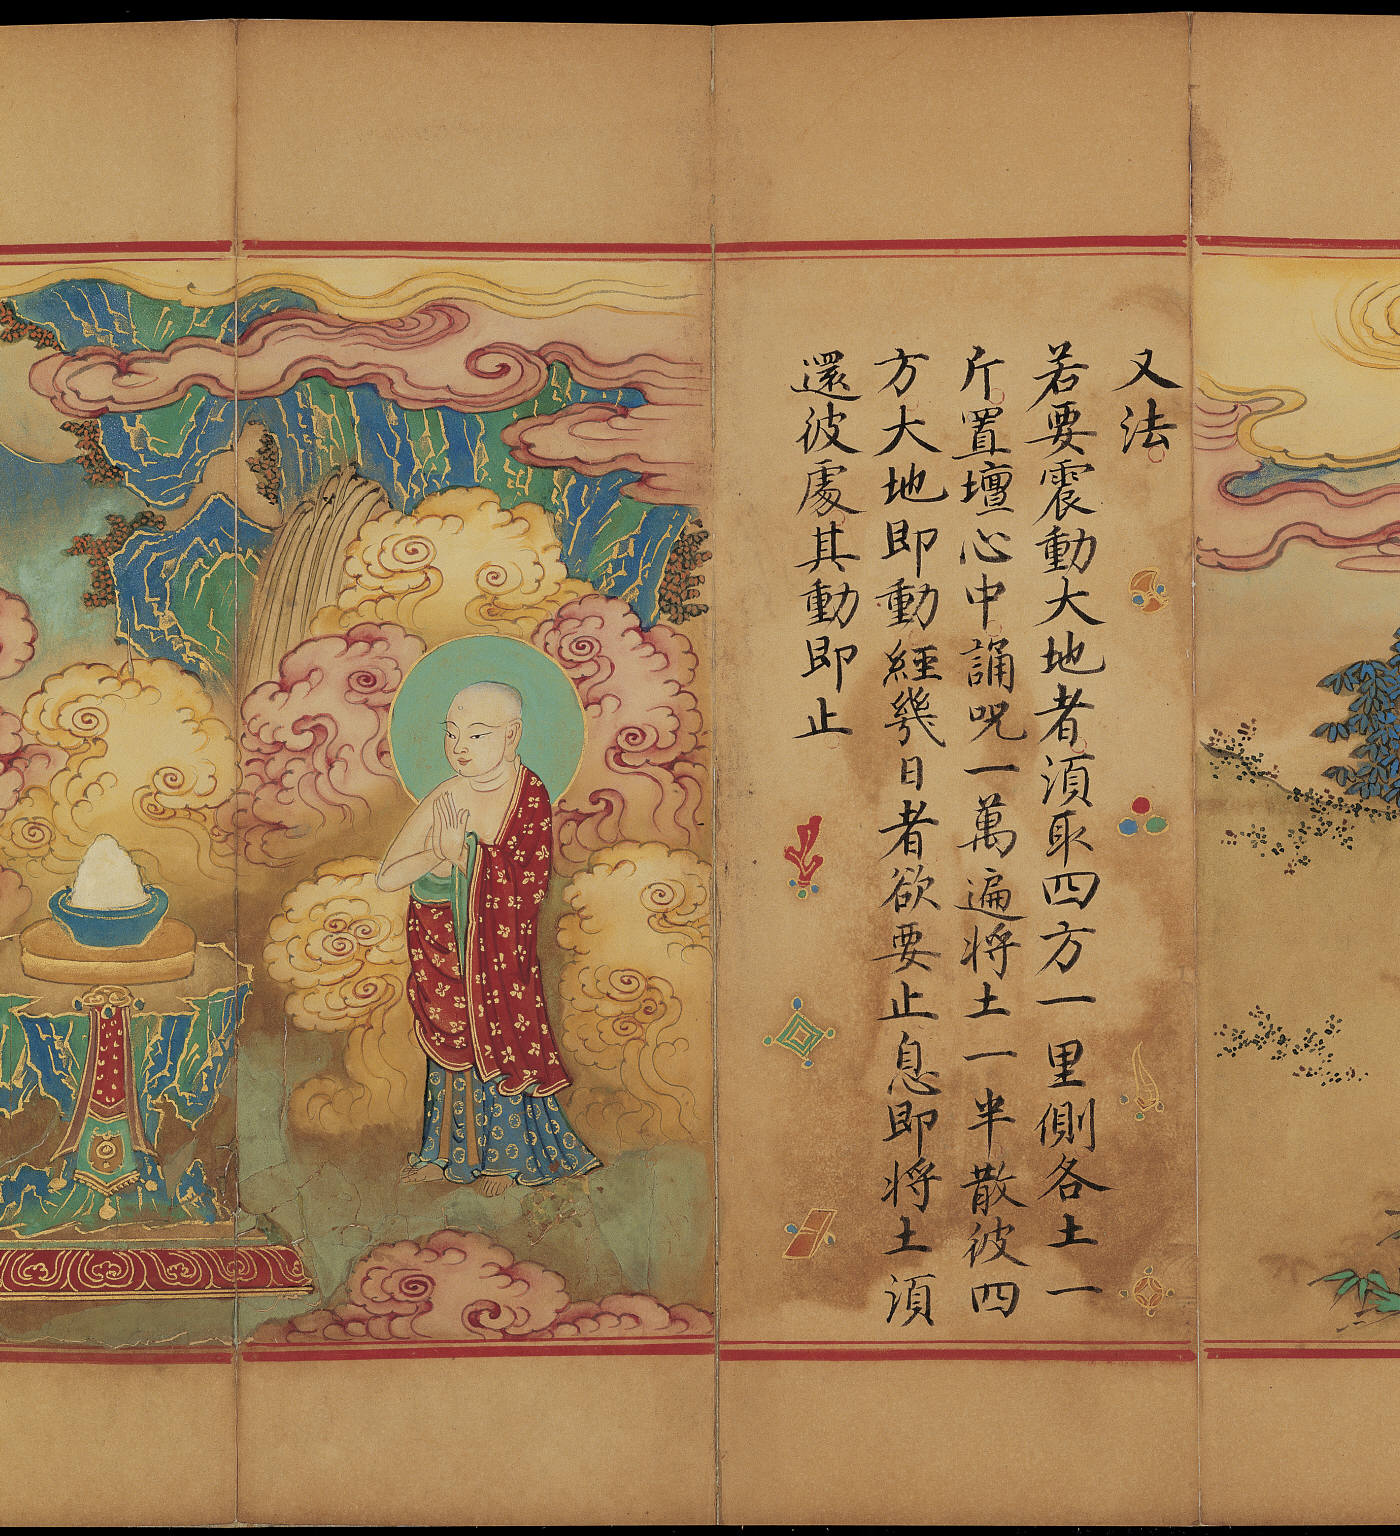 又法
若要震動大地者須取四方一里側各土一
斤置壇心中誦呪一萬遍将土一半散彼四
方大地即動經幾日者欲要止息即将土須
還彼處其動即止